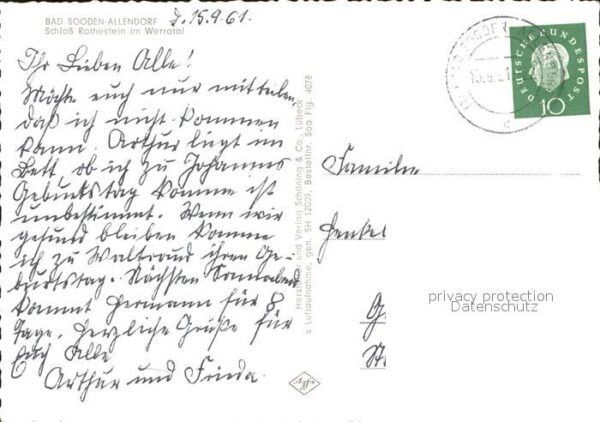 BAD SOODEN-ALLENDORF
Schloß Rothestein im Werratal
d. 15.9.61.
Ihr Lieben Alle!
Möchte euch nur mitteilen,
daß ich nicht kommen
kann. Arthur liegt im
Bett, ob ich zu Johannes
Geburtstag komme ist
unbestimmt. Wenn wir
gesund bleiben komme
ich zu Waltraud ihren Ge-
burtstag. Nächsten Sonnabend
kommt Hermann für 8
Tage. Herzliche Grüße für
Euch Alle
Arthur und Frieda.
Herst. und Verlag Schöning & Co., Lübeck
s Luftaufnahme, gen. SH 12002, Bestellnr. Soo Flg. 4078
DEUTSCHE BUNDESPOST
10
15.9.61
c
Familie
Henkel
G.
St.
privacy protection
Datenschutz